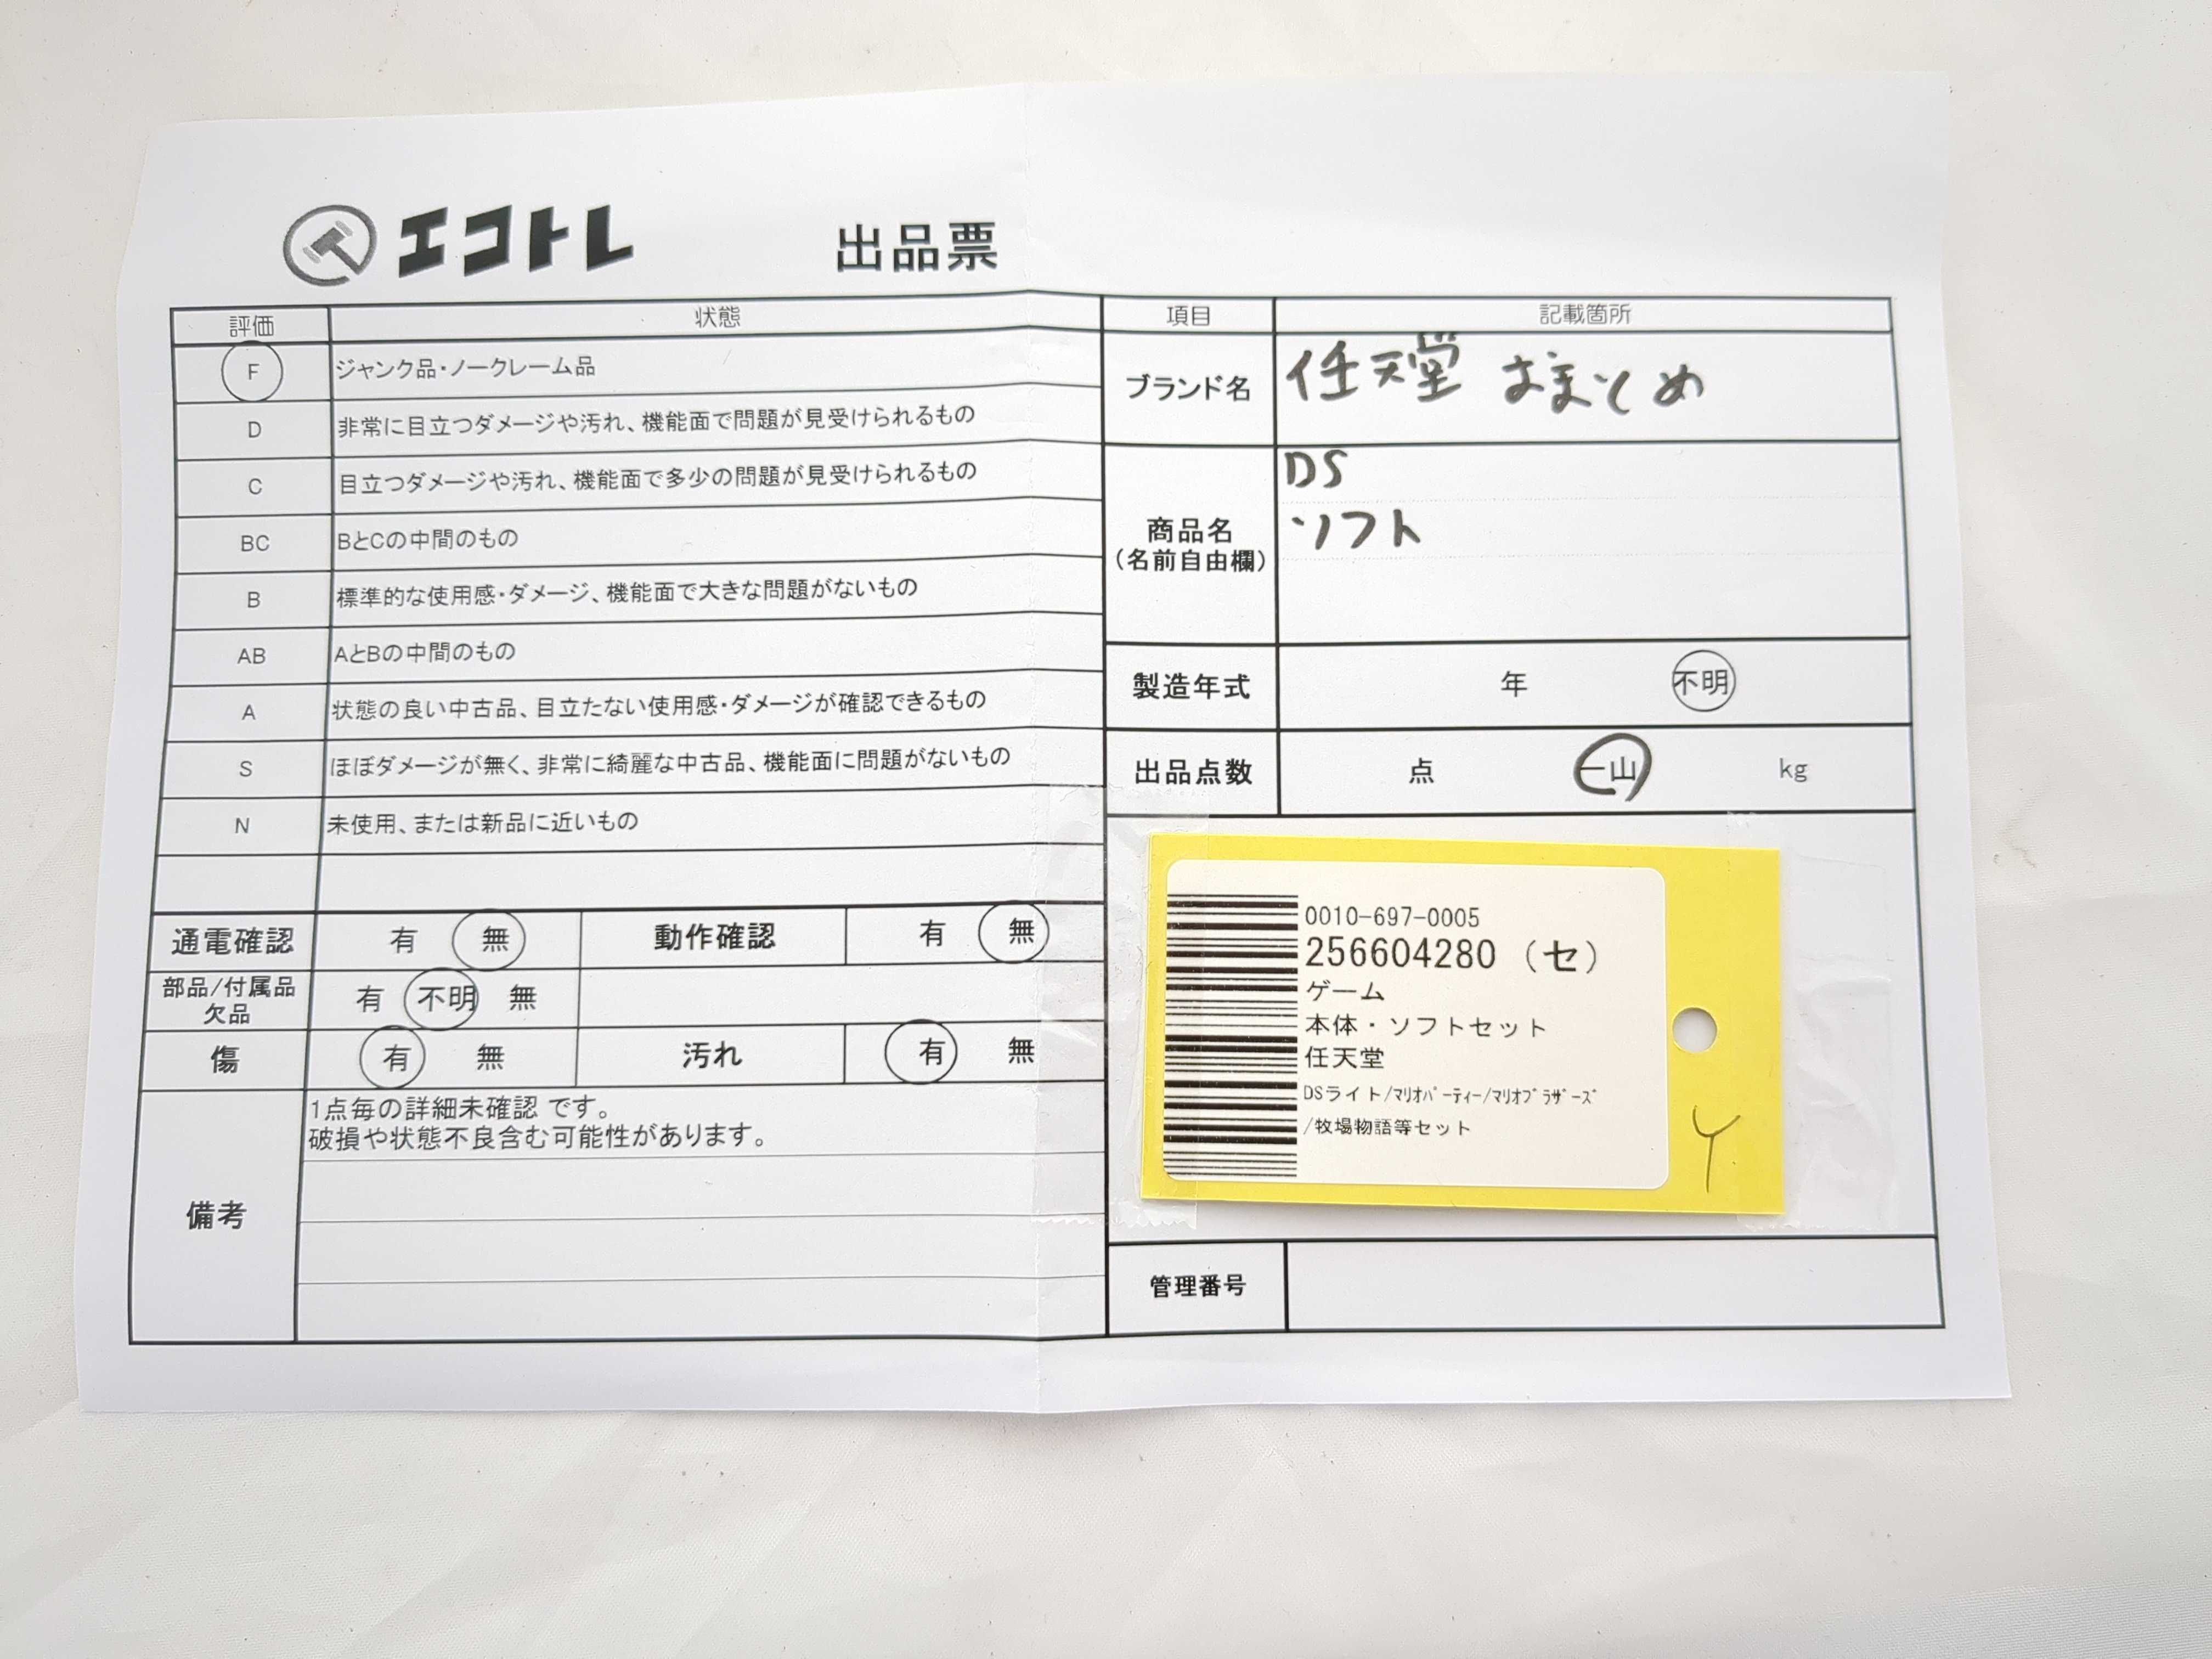 エコトレ
出品票
評価 状態
F ジャンク品・ノークレーム品
D 非常に目立つダメージや汚れ、機能面で問題が見受けられるもの
C 目立つダメージや汚れ、機能面で多少の問題が見受けられるもの
BC BとCの中間のもの
B 標準的な使用感・ダメージ、機能面で大きな問題がないもの
AB AとBの中間のもの
A 状態の良い中古品、目立たない使用感・ダメージが確認できるもの
S ほぼダメージが無く、非常に綺麗な中古品、機能面に問題がないもの
N 未使用、または新品に近いもの
通電確認 有 無 動作確認 有 無
部品/付属品
欠品
有 不明 無
傷 有 無 汚れ 有 無
備考
1点毎の詳細未確認 です。
破損や状態不良含む可能性があります。
項目 記載箇所
ブランド名 任天堂 おまとめ
商品名
(名前自由欄)
DS
ソフト
製造年式 年 不明
出品点数 点 一山 kg
0010-697-0005
256604280 (セ)
ゲーム
本体・ソフトセット
任天堂
DSライト/マリオパーティー/マリオブラザーズ
/牧場物語等セット
Y
管理番号